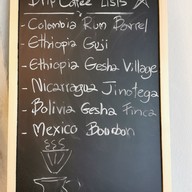 Drip Coffee Lists
- Colombia Rum Barrel
- Ethiopia Guji
- Ethiopia Gesha Village
- Nicarragua Jinotega
- Bolivia Gesha Finca
- Mexico Bourbon